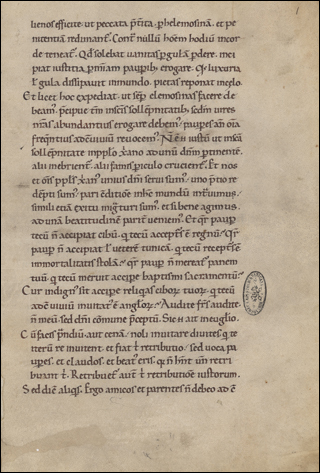 lienos efficite · ut peccata p̄t̄ita · p̱ helemosinā · et pe
nitentiā redimant̄ · Cont̄ nullū hoēm hodiū in cor
de teneat̄ · Qđ solebat uanitas p̱ gulā p̱dere · mi
piat iustitia p̱ m̄am paup̱ib; erogare · Q̇ luxuria
ł gula dissipauit in mundo · pietas reponat in cęlo ·
Et licet hoc expediat · ut sēp̱ elemosinas facere de
beam̄ · p̄cipue tm̄ in sc̄is sollēpnitatib; · sedm̄ uires
nr̄as abundantius erogare debem̄ · paup̱es an̄ om̄a
freq̄ntius ad ↄuiuiū reuocem̄ · Nē ē iustū ut in sc̄a
sollēpnitate in pp̱lo x̄ano ad unū dn̄m p̱tinente ·
alii inebrient̄ · alii famis p̱iculo crucient̄ · Et nos
et om̄s pp̱ls x̄an̄ unius dn̄i serui sum̄ · uno p̄tio re
dēpti sum̄ · pari ↄditione in hc̄ mundū int̄uimus ·
simili etiā exitu mig̈turi sum̄ · et si bene agimus ·
ad unā beatitudinē parit̄ ueniem̄ · Et q̄r paup̱
tecū n̄ accipiat cibū · q̇ tecū accepturus ē regnū · Q̄r
paup̱ n̄ accipiat ł ueterē tunicā · q̇ tecū receptur̄ ē
inmortalitatis stolā · q̄r paup̱ n̄ mereat̄ panem
tuū · q̇ tecū meruit accipe baptismi sacramentū ·
Cur indign̄ sit accipe reliq̇as cibor̄ tuor̄ · q̇ tecū
ad ↄuiuiū inuitat̄ ē angl̄or̄ · Audite fr̄s audite ·
n̄ meū · sed dn̄i cōmune p̄ceptū · Sic n̄ ait in eu̅glio ·
Cū facis p̱ndiū · aut cenā · noli inuitare diuites · q̇ te
iterū re inuitent · et fiat t̄ retributio · sed uoca pa
up̱es · et claudos · et beat̄ eris · q̇a n̄ hn̄t un̄ retri
buant t̄ · Retribuet̄ aut̄ t̄ retributiōe iustorum ·
Sed dic̄ aliq̇s · Ergo amicos et parentes n̄ debeo ad ↄ